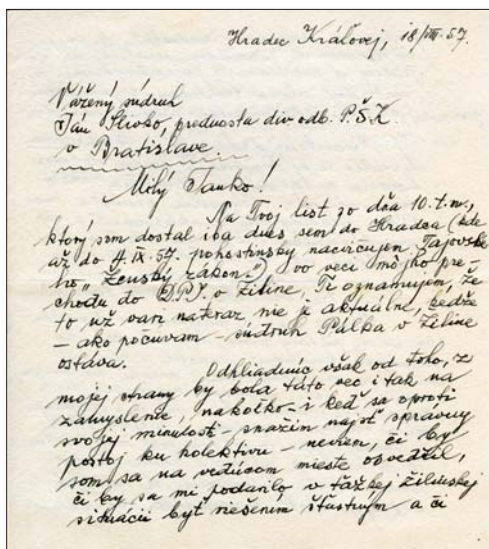 Hradec Kráľovej, 18/VIII. 57.
Vážený súdruh
Ján Slivko, prednosta div. odb. P.Š.K.
v Bratislave.
Milý Janko!
Na Tvoj list zo dňa 10. t.m.,
ktorý som dostal iba dnes sem do Hradca (kde
až do 4.IX.57. pohostinsky nacvičujem Tajovské-
ho „Ženský zákon"), vo veci môjho pre-
chodu do D.P.J. v Žiline, Ti oznamujem, že
to už vari nateraz nie je aktuálne, kedže
– ako počúvam – súdruh Pálka v Žiline
ostáva.
Odhliadnúc však od toho, z
mojej strany by bola táto vec i tak na
zamyslenie, nakoľko – i keď sa oproti
svojej minulosti – snažím najsť spravny
postoj ku kolektívu – neviem, či by
som sa na vedúcom mieste osvedčil,
či by sa mi podarilo v ťažkej žilinskej
situácii byť riešením šťastným a či